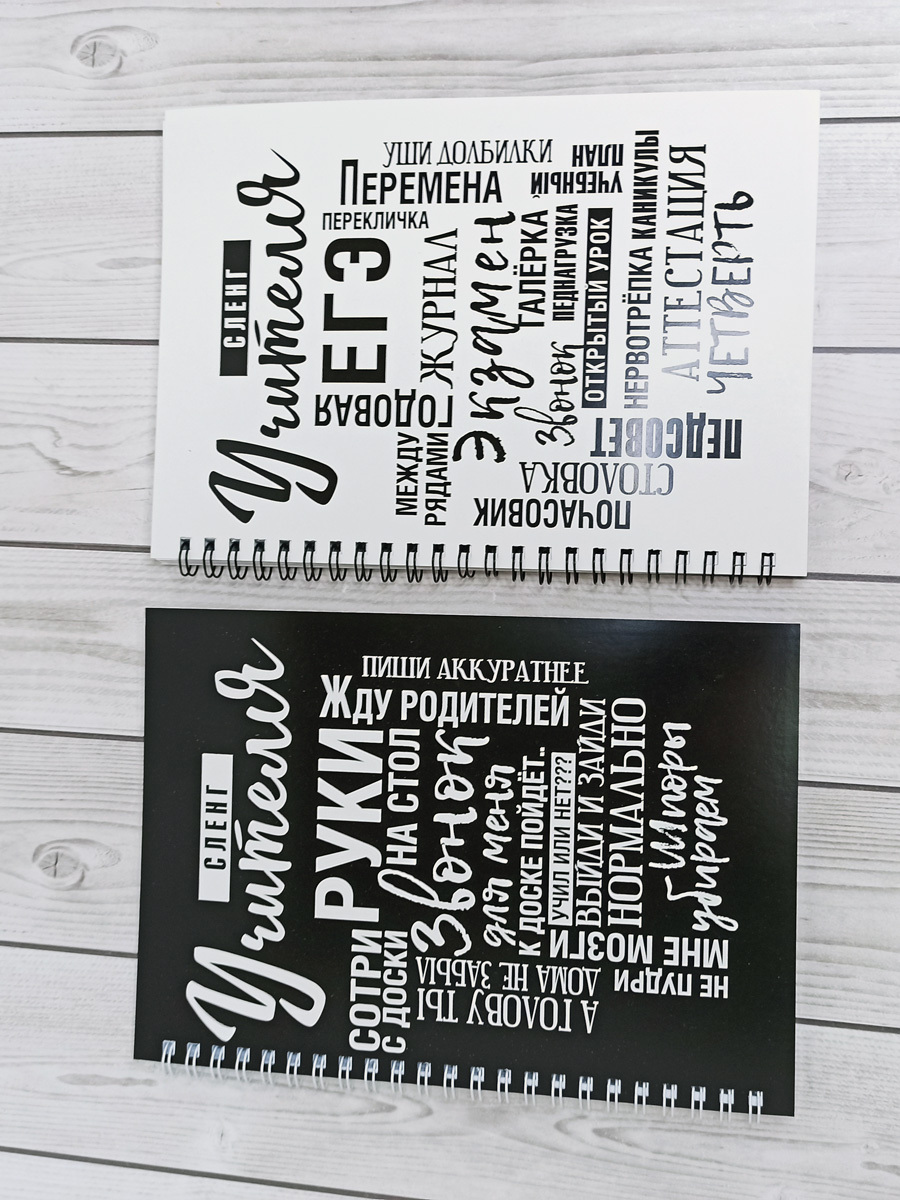 СЛЕНГ
Учителя
УШИ ДОЛБИЛКИ
ПЕРЕМЕНА
ПЕРЕКЛИЧКА
ЕГЭ
ГОДОВАЯ
МЕЖДУ
РЯДАМИ
ЖУРНАЛ
Экзамен
ГАЛЁРКА
УЧЕБНЫЙ
ПЛАН
ПЕДНАГРУЗКА
Звонок
ОТКРЫТЫЙ УРОК
НЕРВОТРЁПКА КАНИКУЛЫ
АТТЕСТАЦИЯ
ЧЕТВЕРТЬ
ПЕДСОВЕТ
СТОЛОВКА
ПОЧАСОВИК
СЛЕНГ
Учителя
ПИШИ АККУРАТНЕЕ
ЖДУ РОДИТЕЛЕЙ
РУКИ
НА СТОЛ
СОТРИ
С ДОСКИ
Звонок
для меня
К ДОСКЕ ПОЙДЁТ..
УЧИЛ ИЛИ НЕТ???
ВЫЙДИ И ЗАЙДИ
НОРМАЛЬНО
Шпоры
убираем
А ГОЛОВУ ТЫ
ДОМА НЕ ЗАБЫЛ
НЕ ПУДРИ
МНЕ МОЗГИ